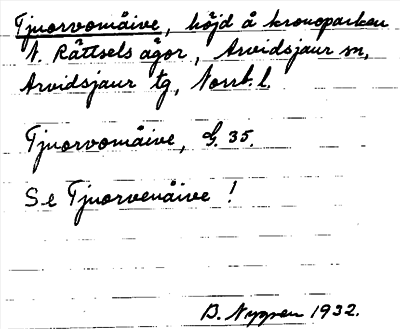 Tjuorvomåive, höjd å kronoparken
N. Rättsels ägor, Arvidsjaur sn,
Arvidsjaur tg, Norrb. l.
Tjuorvomåive, G. 35.
Se Tjuorvenåive !
B. Nygren 1932.